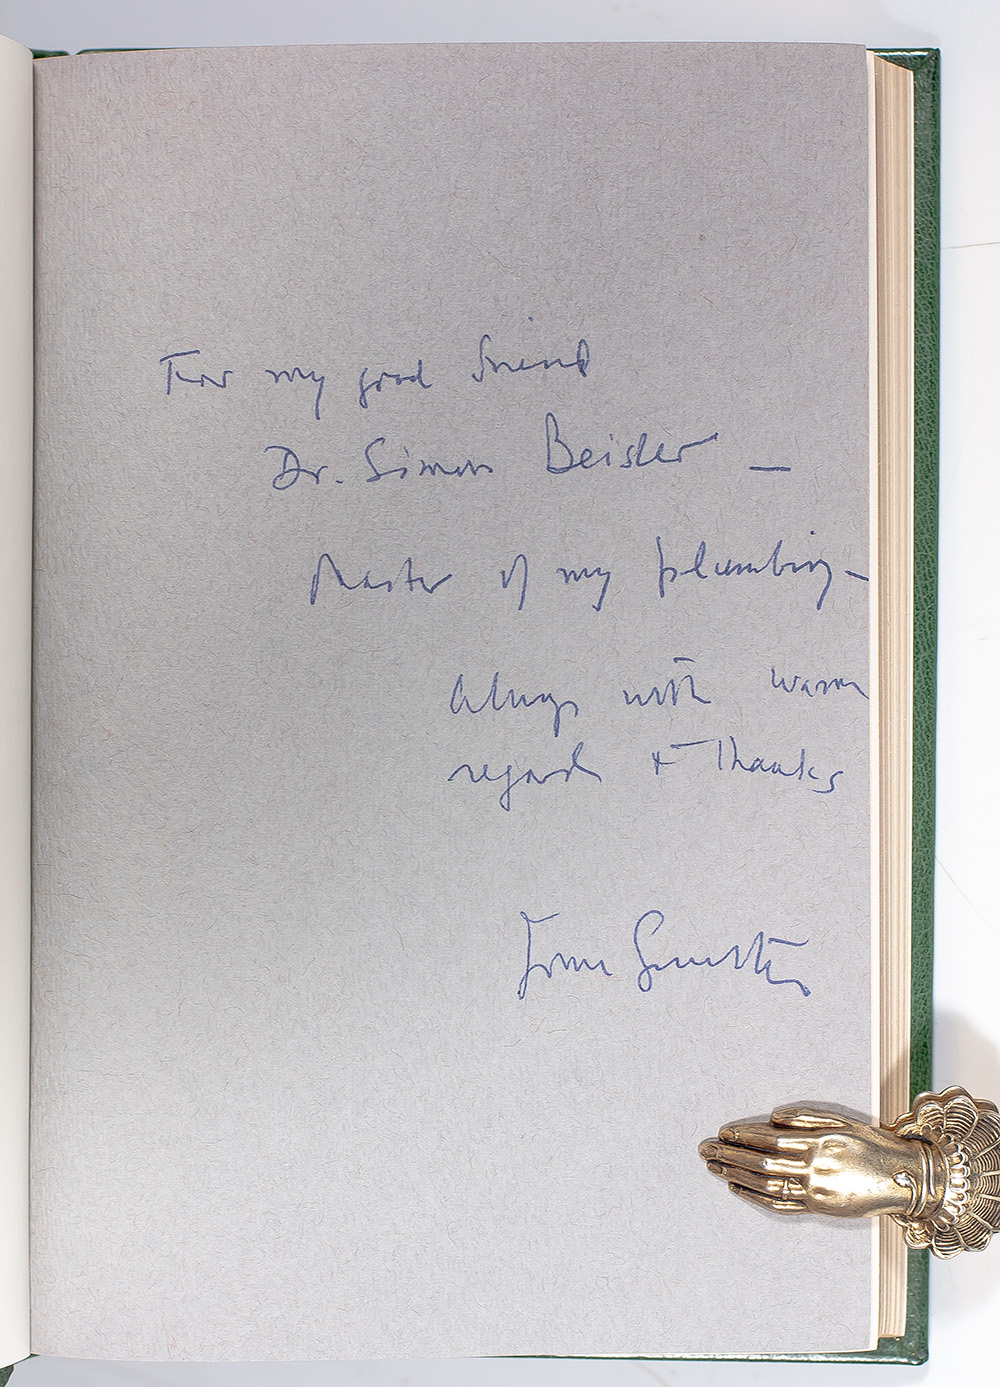 For my good friend
Dr. Simon Beisler —
Master of my plumbing —
Always with warm
regards + Thanks
John Gunther